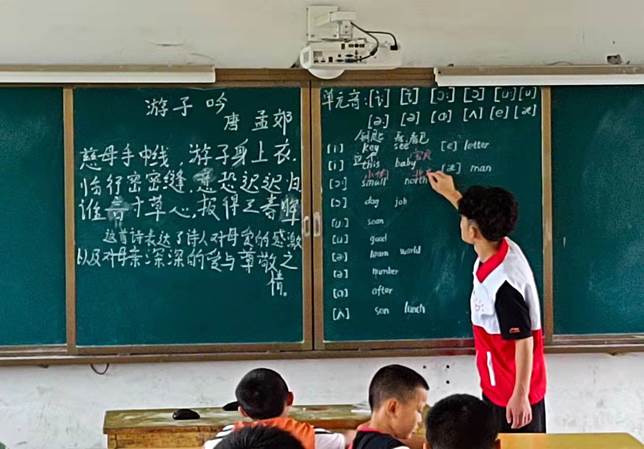 游子吟
唐 孟郊
慈母手中线，游子身上衣.
临行密密缝，意恐迟迟归
谁言寸草心，报得三春晖
这首诗表达了诗人对母爱的感激
以及对母亲深深的爱与尊敬之
情。
单元音:[i:] [ɪ] [ɔ:] [ɔ] [u:] [u]
[ə:] [ə] [ɑ] [ʌ] [e] [æ]
钥匙 看,看见
[i] key see [e] letter
[ɪ] this baby [æ] man
[ɔ:] small north
[ɔ] dog job
[u:] soon
[u] good
[ə:] learn world
[ə] number
[ɑ] after
[ʌ] son lunch